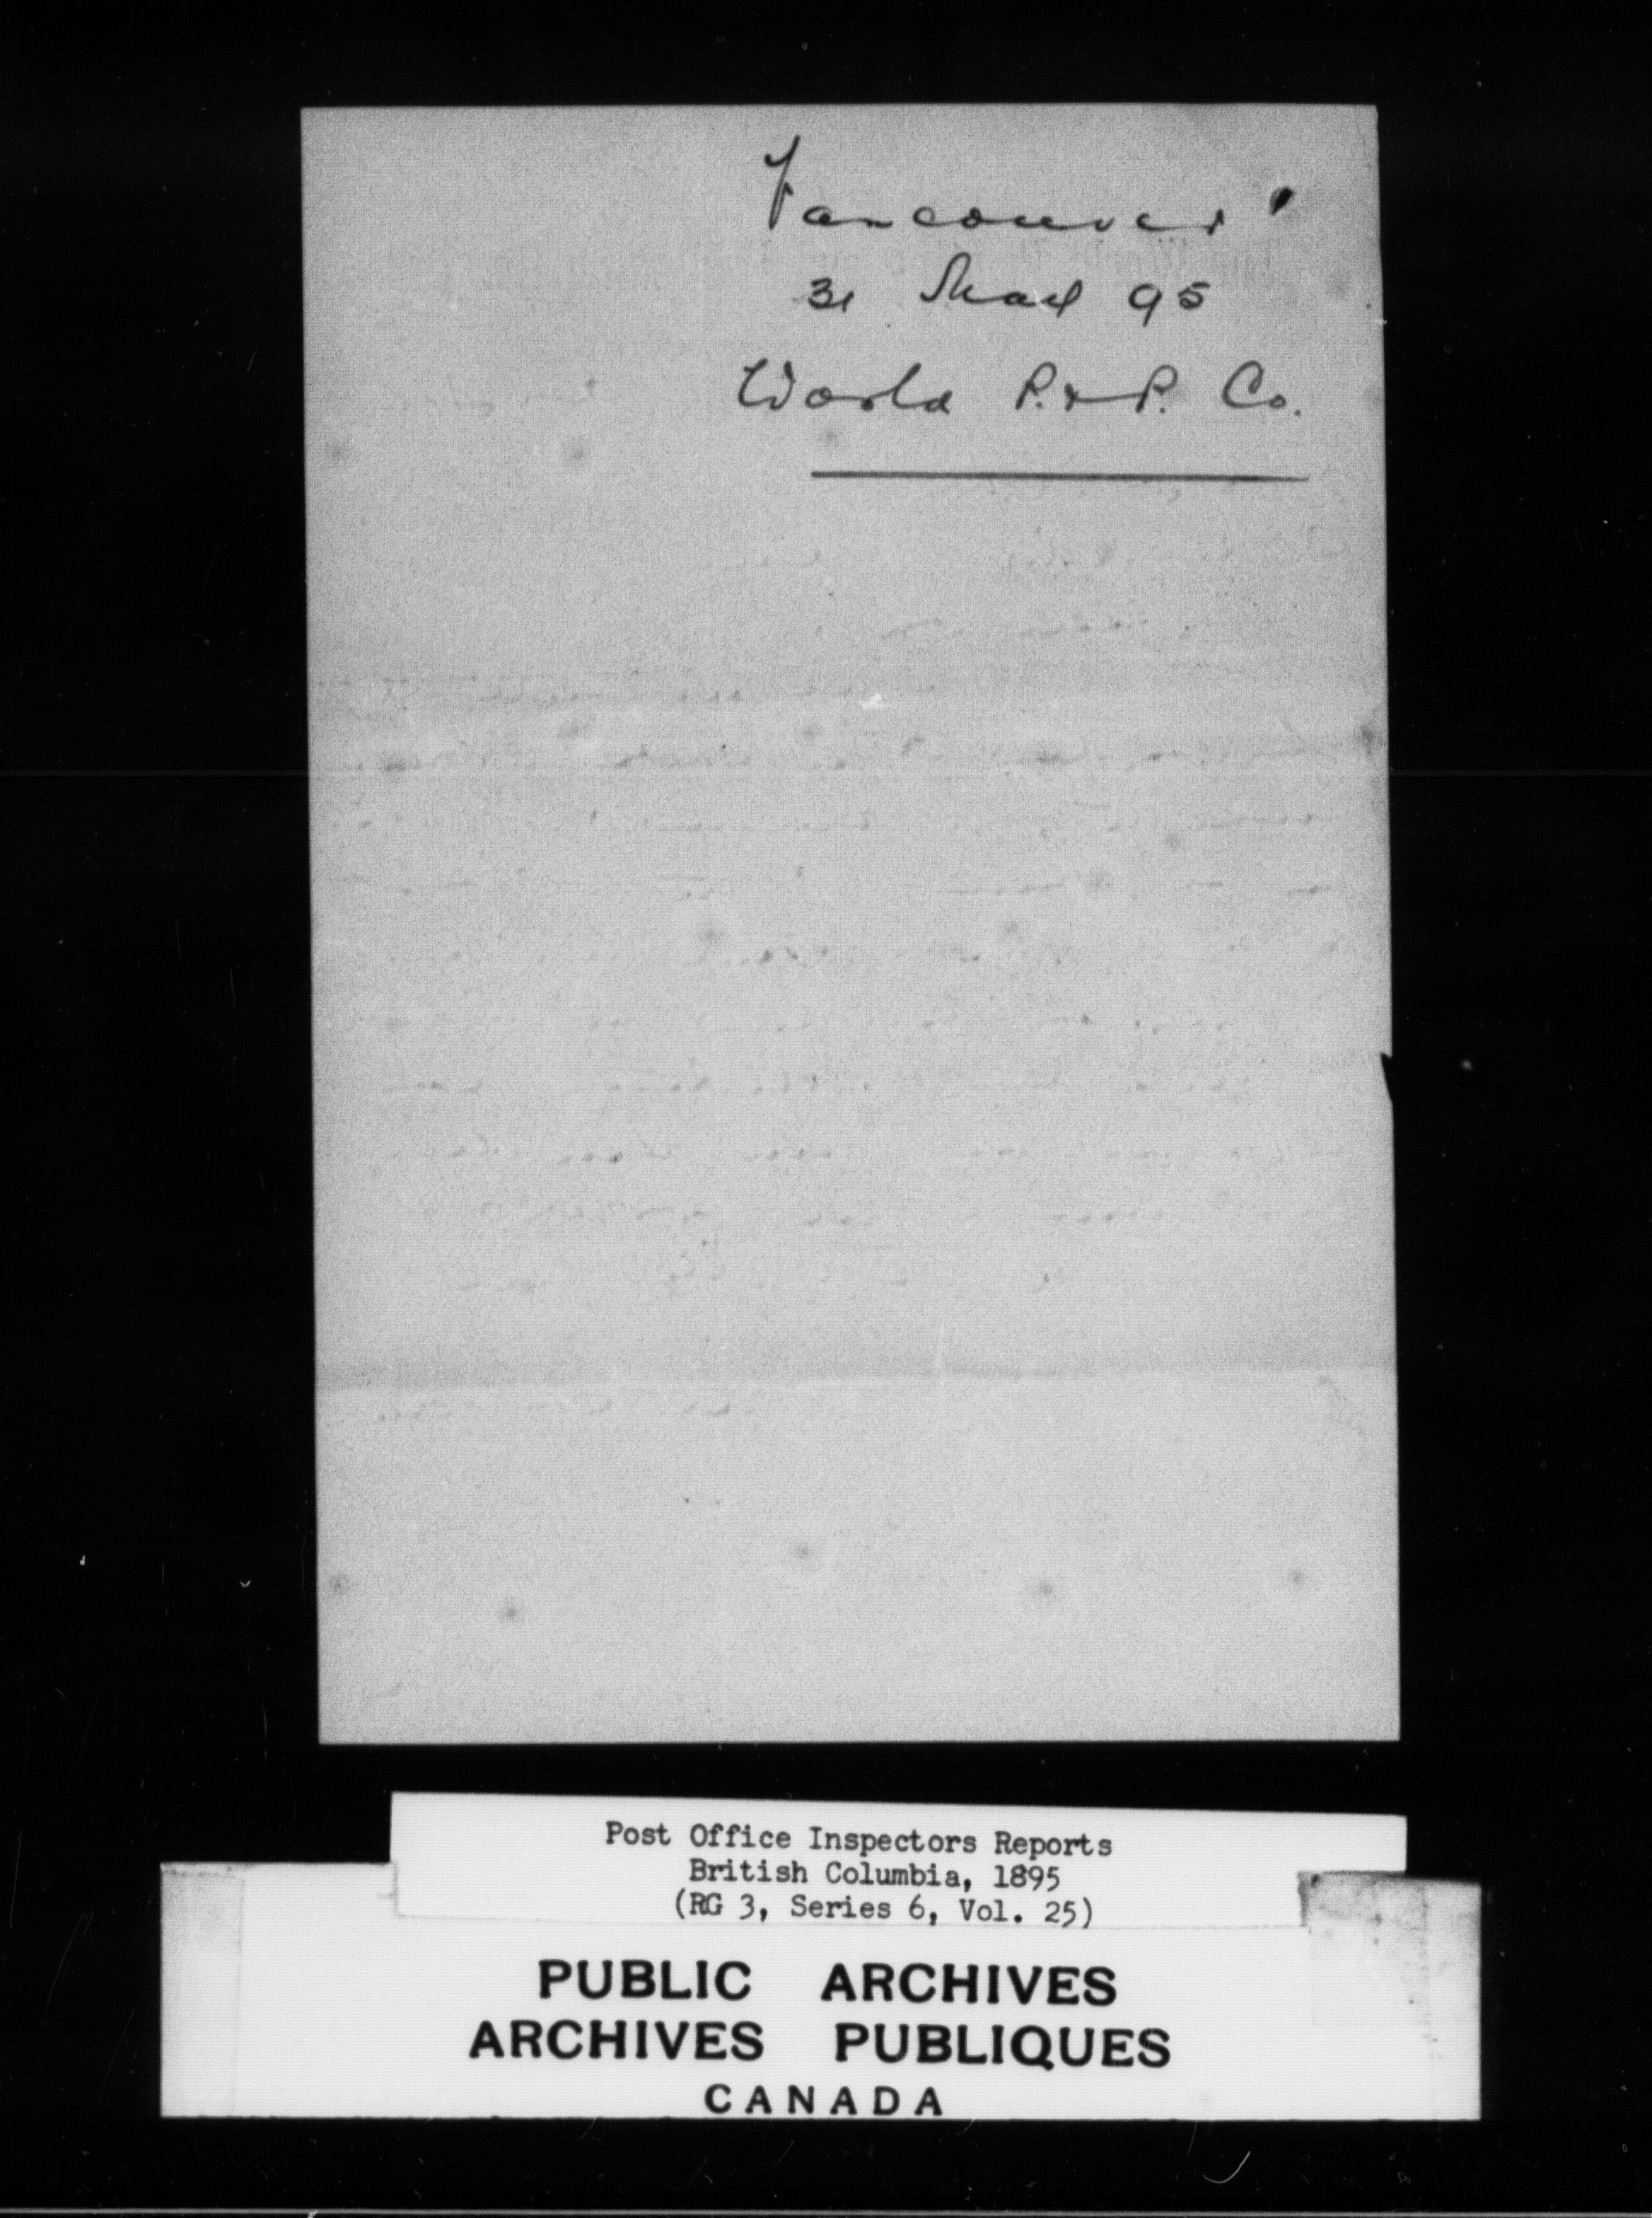 Vancouver
31 May 95
World P. & P. Co.
Post Office Inspectors Reports
British Columbia, 1895
(RG 3, Series 6, Vol. 25)
PUBLIC ARCHIVES
ARCHIVES PUBLIQUES
CANADA